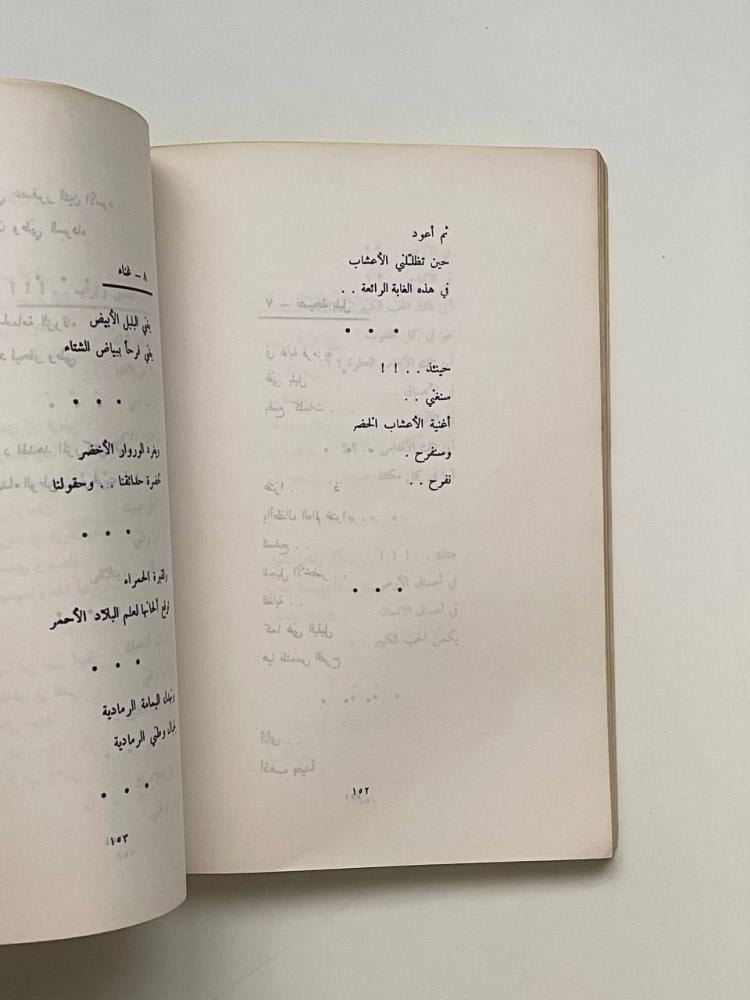 ثم أعود
حين تظلـّلني الأعشاب
في هذه الغابة الرائعة . .
• • •
حينئذ . . ! !
سنغني . .
أغنية الأعشاب الخضر
وسنفرح .
نفرح . .
• • •
١٥٢
٨ - غناء
يغني البلبل الأبيض
يغني فرحاً ببياض الشتاء
• • •
ويغرد الوروار الأخضر
لخضرة حدائقنا . . وحقولنا
• • •
والقبرة الحمراء
توقع ألحانها لعلم البلاد الأحمر
• • •
اليمامة الرمادية
وطني الرمادية
• • •
١٥٣